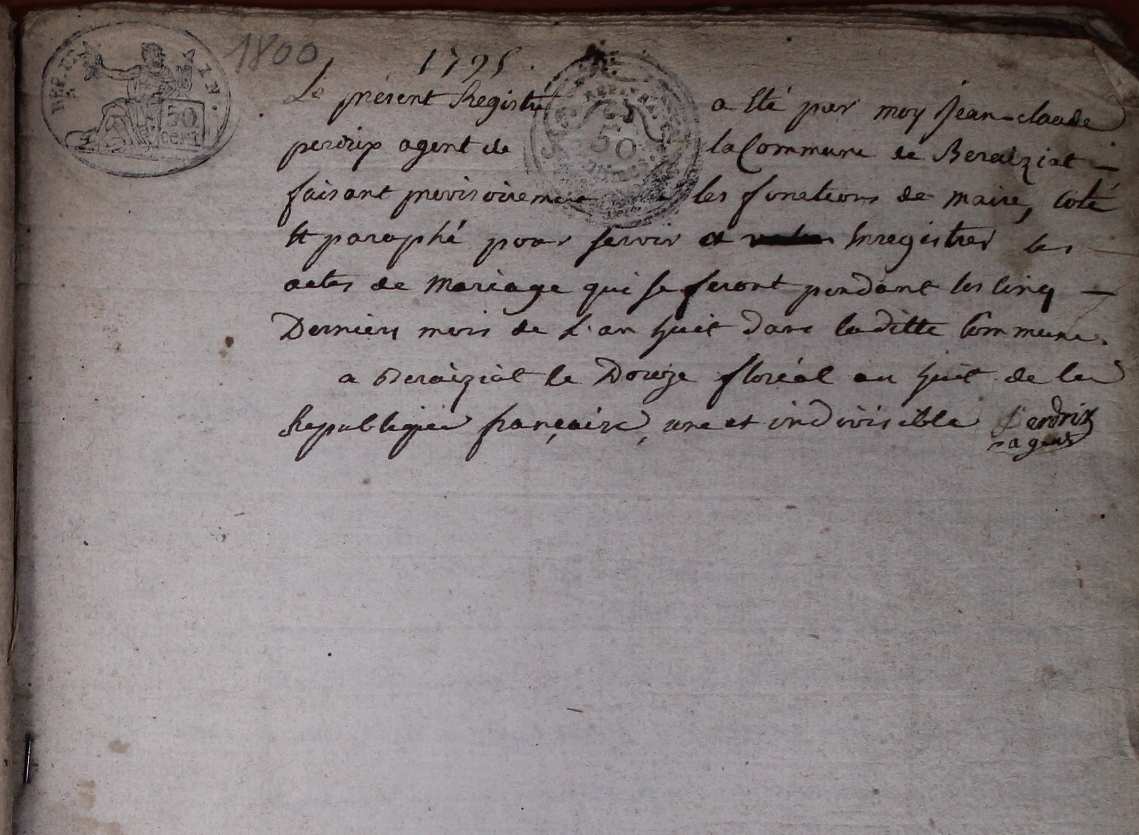 REP. FRA AIN.
50
cent
1800
1795.
REP. FRA
50
Le présent Registre a été par moy Jean-claude
perdrix agent de la Commune de Beraiziat -
faisant provisoirement les fonctions de maire, coté
Et paraphé pour servir a Enregistrer les
actes de mariage qui se feront pendant les cinq -
Derniers mois de L'an huit dans laditte Commune.
a Beraiziat le Douze floréal an huit de la
Republique française, une et indivisible Perdrix
agent